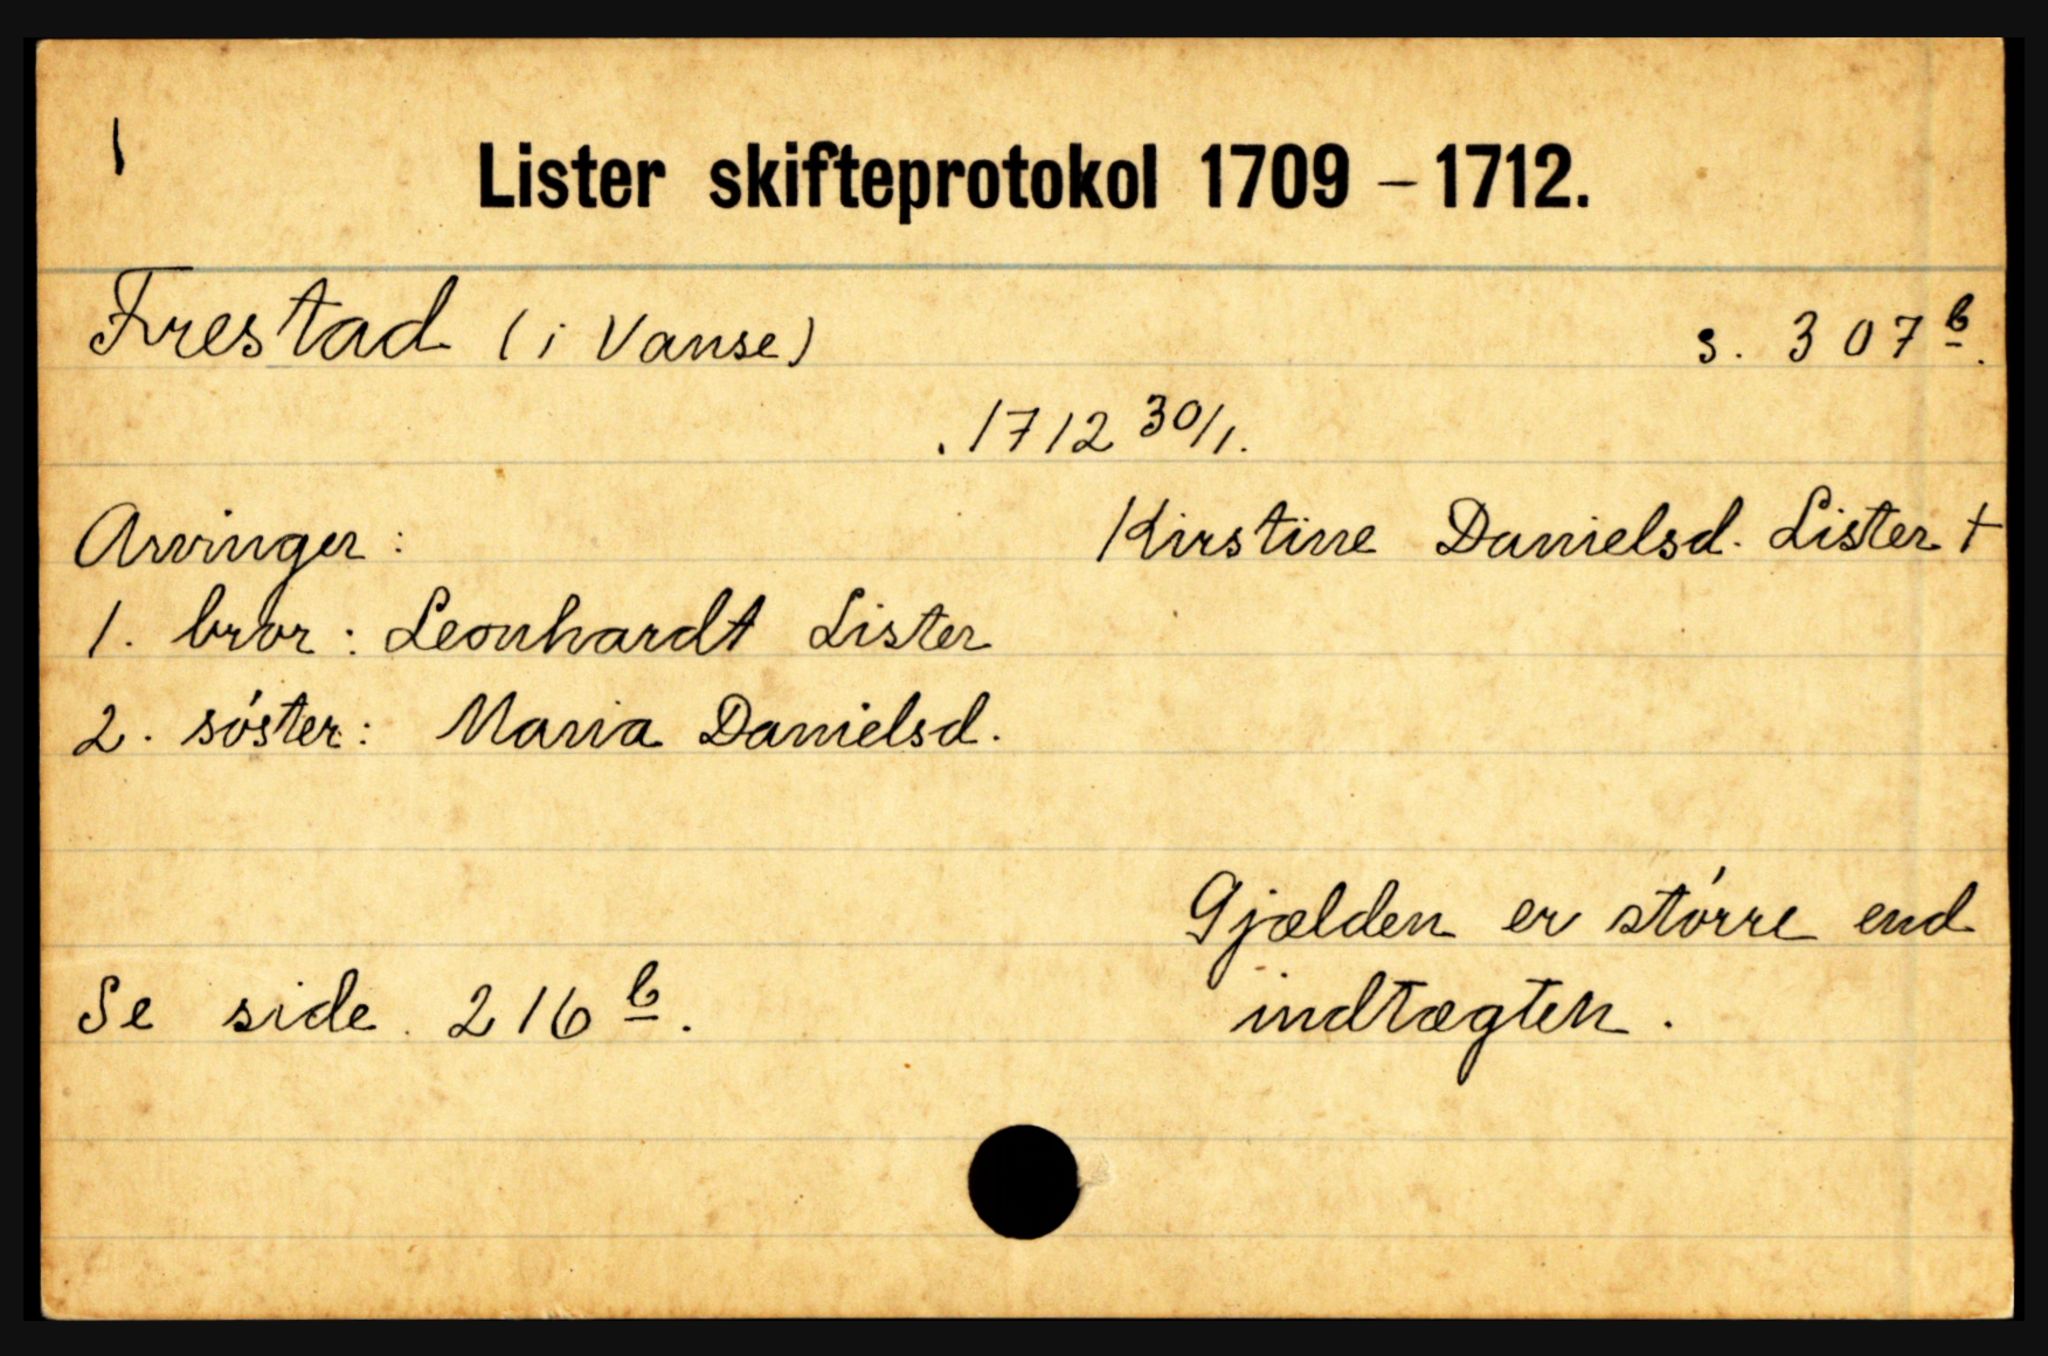 1
Lister skifteprotokol 1709 – 1712.
Frestad (i Vanse) s. 307 b.
. 1712 30/1.
Arvinger: Kirstine Danielsd. Lister †
1. bror: Leonhardt Lister
2. søster: Maria Danielsd.
Gjælden er større end
Se side 216 b. indtægten.